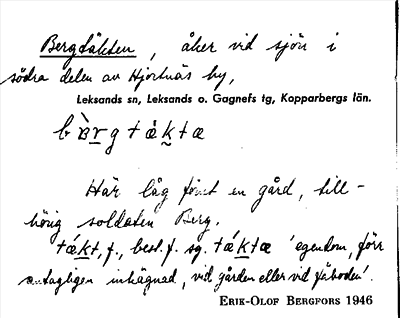 Bergtäkten, åker vid sjön i
södra delen av Hjortnäs by,
Leksands sn, Leksands o. Gagnefs tg, Kopparbergs län.
bærgtäktæ
Här låg förut en gård, till-
hörig soldaten Berg.
täkt, f., best. f. sg. täktæ 'egendom, förr
antagligen inhägnad, vid gården eller vid fäboden'.
ERIK-OLOF BERGFORS 1946